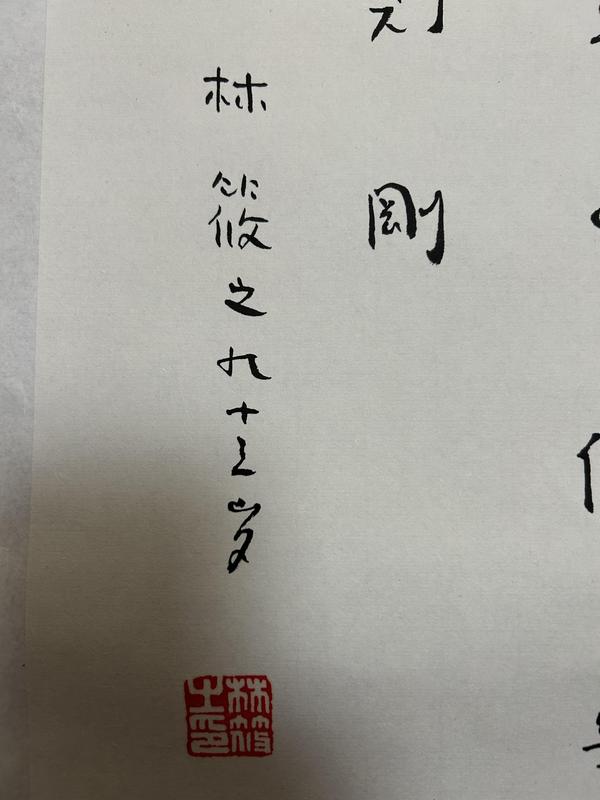 剛
林筱之九十三岁
林筱
之印